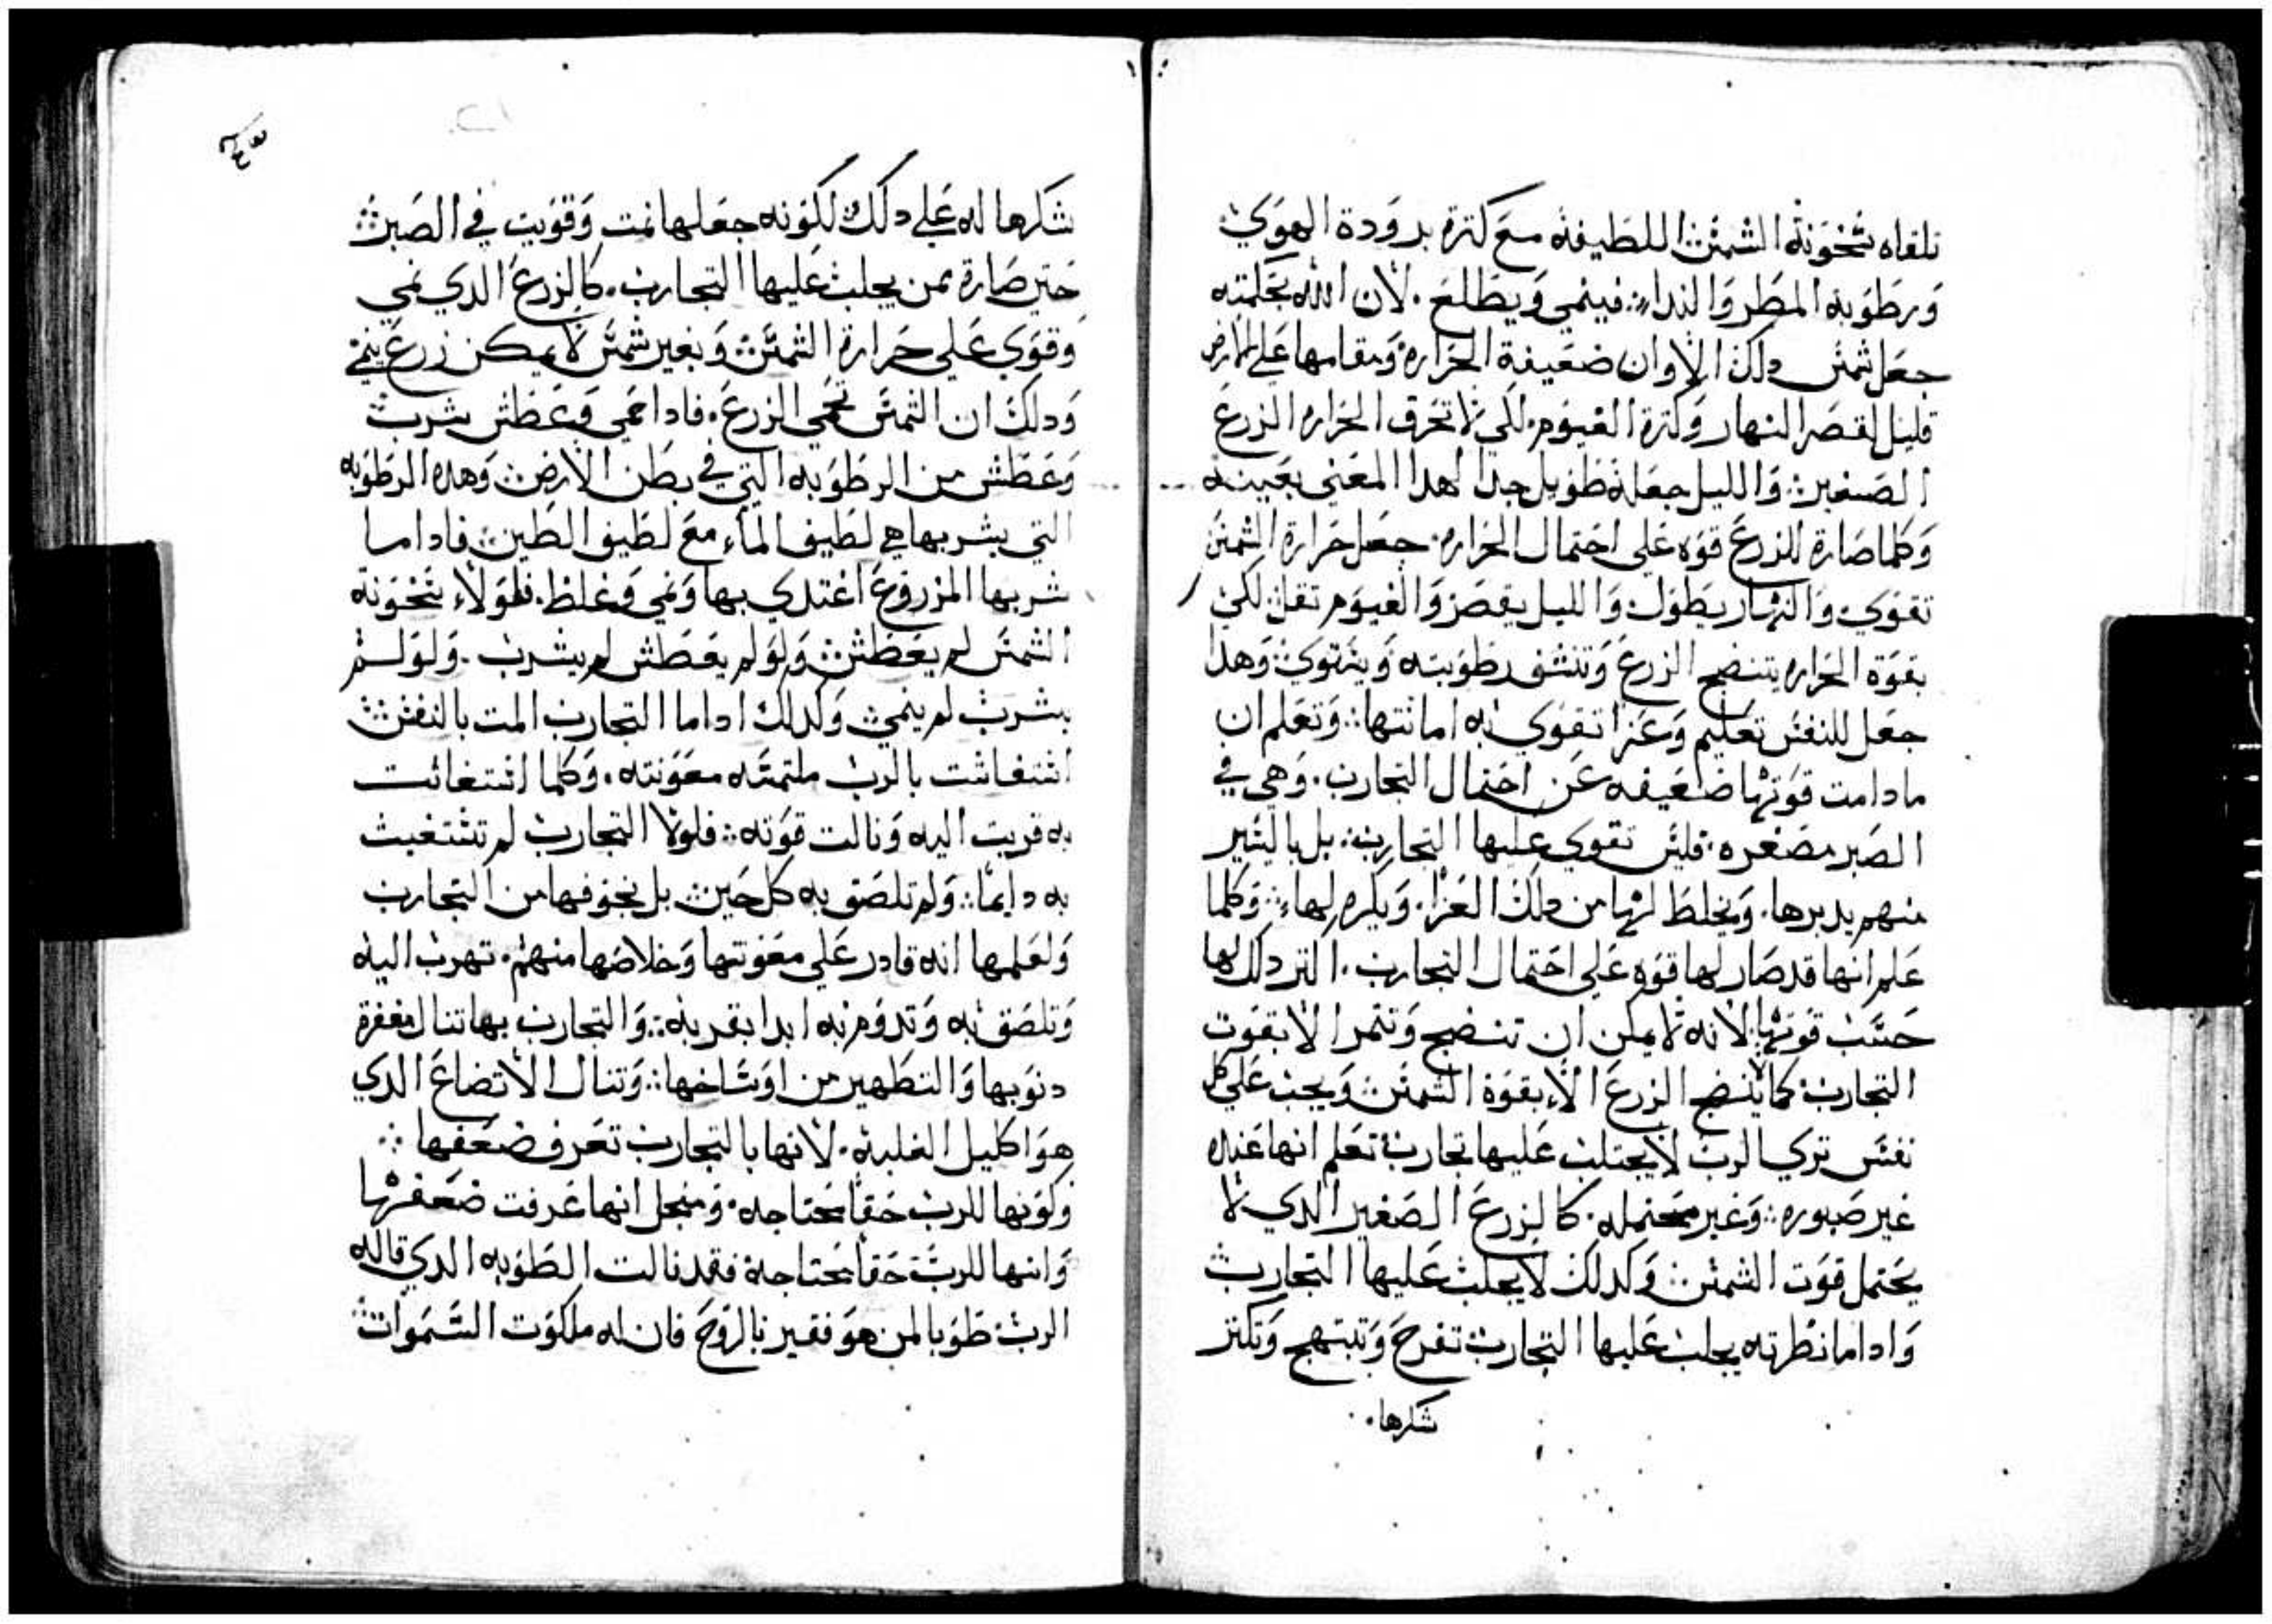 تلقاه سخونة الشمس اللطيفه مع كترة برودة الهوي
ورطوبة المطر والندا. فينمي ويطلع. لان الله بحكمته
جعل شمس دلك الاوان ضعيفة الحراره ومقامها علي الارض
قليل لقصر النهار وكترة الغيوم. لكي لا تحرق الحراره الزرع
الصغير. والليل جعله طويل جدا لهدا المعني بعينه
وكلما صارة للزرع قوه علي احتمال الحراره. جعل حرارة الشمس
تقوي والنهار يطول والليل يقصر والغيوم تقل. لكي
بقوة الحراره يتنضج الزرع وتنشف رطوبته ويستوي. وهدا
جعل للنفس تعليم وعزا تقوي به امانتها. وتعلم ان
ما دامت قوتها ضعيفه عن احتمال التجارب. وهي في
الصبر مصغره. فليس تقوي عليها التجارب. بل باليسير
منهم يدبرها. ويخلط لها من دلك العزا. ويكرم لها. وكلما
علم انها قد صار لها قوه علي احتمال التجارب. اكتر دلك لها
حسب قوتها. لانه لا يمكن ان تنضج وتتمر الا بقوت
التجارب كما لا ينضج الزرع الا بقوة الشمس ويجب علي كل
نفس تري الرب لا يجلب عليها تجارب تعلم انها عنده
غير صبوره. وغير محتمله. كالزرع الصغير الدي لا
يحتمل قوت الشمس وكدلك لا يجلب عليها التجارب
وادا ما نظرته يجلب عليها التجارب تفرح وتبتهج وتكتر
شكرها.
شكرها له علي دلك لكونه جعلها نمت وقويت في الصبر
حتي صارة ممن يجلب عليها التجارب. كالزرع الدي نمي
وقوي علي حرارة الشمس وبغير شمس لا يمكن زرع ينمي
ودلك ان الشمس تحمي الزرع. فادا حمي وعطش شرب
وعطش من الرطوبه التي في بطن الارض وهده الرطوبه
التي يشربها هي لطيف الماء مع لطيف الطين. فادا ما
شربها المزروع اغتدي بها ونمي وغلظ. فلولاء سخونة
الشمس لم يعطش ولو لم يعطش لم يشرب. ولو لم
يشرب لم ينمي وكدلك ادا ما التجارب المت بالنفس
استغاثت بالرب ملتمسه معونته. وكلما استغاثت
به قربت اليه ونالت قوته. فلولا التجارب لم تستغيث
به دايما. ولم تلصق به كل حين. بل بخوفها من التجارب
ولعلمها انه قادر علي معونتها وخلاصها منهم. تهرب اليه
وتلصق به وتدوم به ابدا بقربه. والتجارب بها تنال مغفرة
دنوبها والتطهير من اوساخها. وتنال الاتضاع الدي
هو اكليل الغلبه. لانها بالتجارب تعرف ضعفها
وكونها للرب حقا محتاجه. ومنجل انها عرفت ضعفها
وانها للرب حقا محتاجة فقد نالت الطوبه الدي قاله
الرب طوبا لمن هو فقير بالروح فان له ملكوت السموات